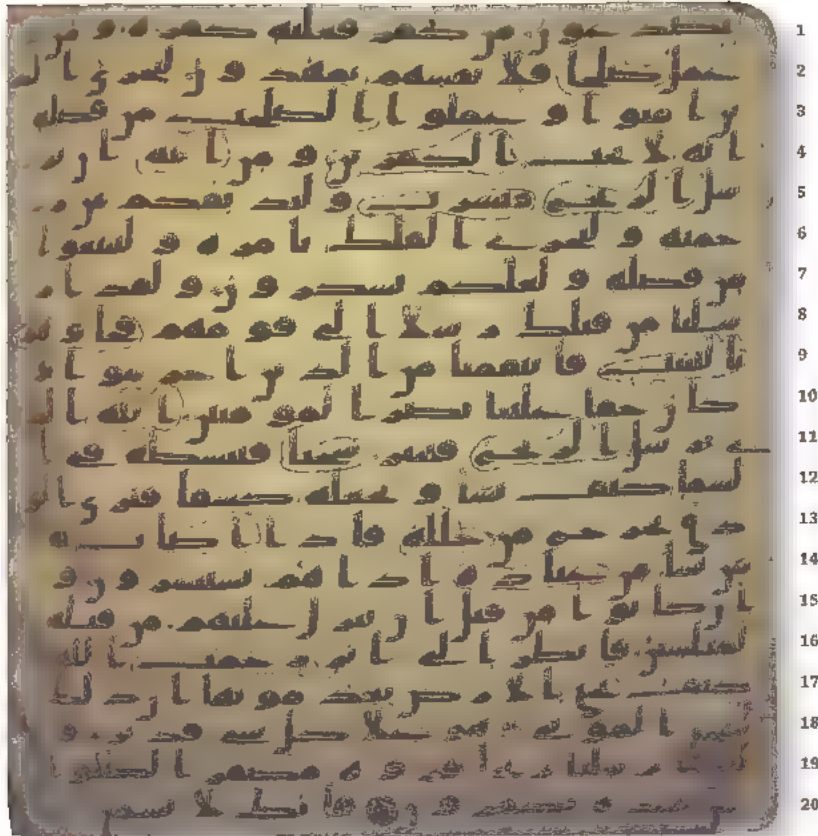 يصدعون من كفر فعليه كفره و من 1
عمل صلحا فلانفسهم يمهدون ليجزي الذ 2
ين امنوا و عملوا الصلحت من فضله 3
انه لا يحب الكفرين و من ايته ان ير 4
سل الريح مبشرت و ليذيقكم من ر 5
حمته و لتجري الفلك بامره و لتبتغوا 6
من فضله و لعلكم تشكرون و لقد ار 7
سلنا من قبلك رسلا الى قومهم فجاوهم 8
بالبينت فانتقمنا من الذين اجرموا و 9
كان حقا علينا نصر المومنين الله الذ 10
ي يرسل الريح فتثير سحبا فيبسطه في ا 11
لسما كيف يشا و يجعله كسفا فترى الو 12
دق يخرج من خلله فاذا اصاب به 13
من يشا من عباده اذا هم يستبشرون و 14
ان كانوا من قبل ان ينزل عليهم من قبله 15
لمبلسين فانظر الى اثر رحمت الله 16
كيف يحي الارض بعد موتها ان ذلك 17
لمحي الموتى و هو على كل شي قدير و 18
لئن ارسلنا ريحا فراوه مصفرا لظلوا 19
من بعده يكفرون فانك لا تسمع 20